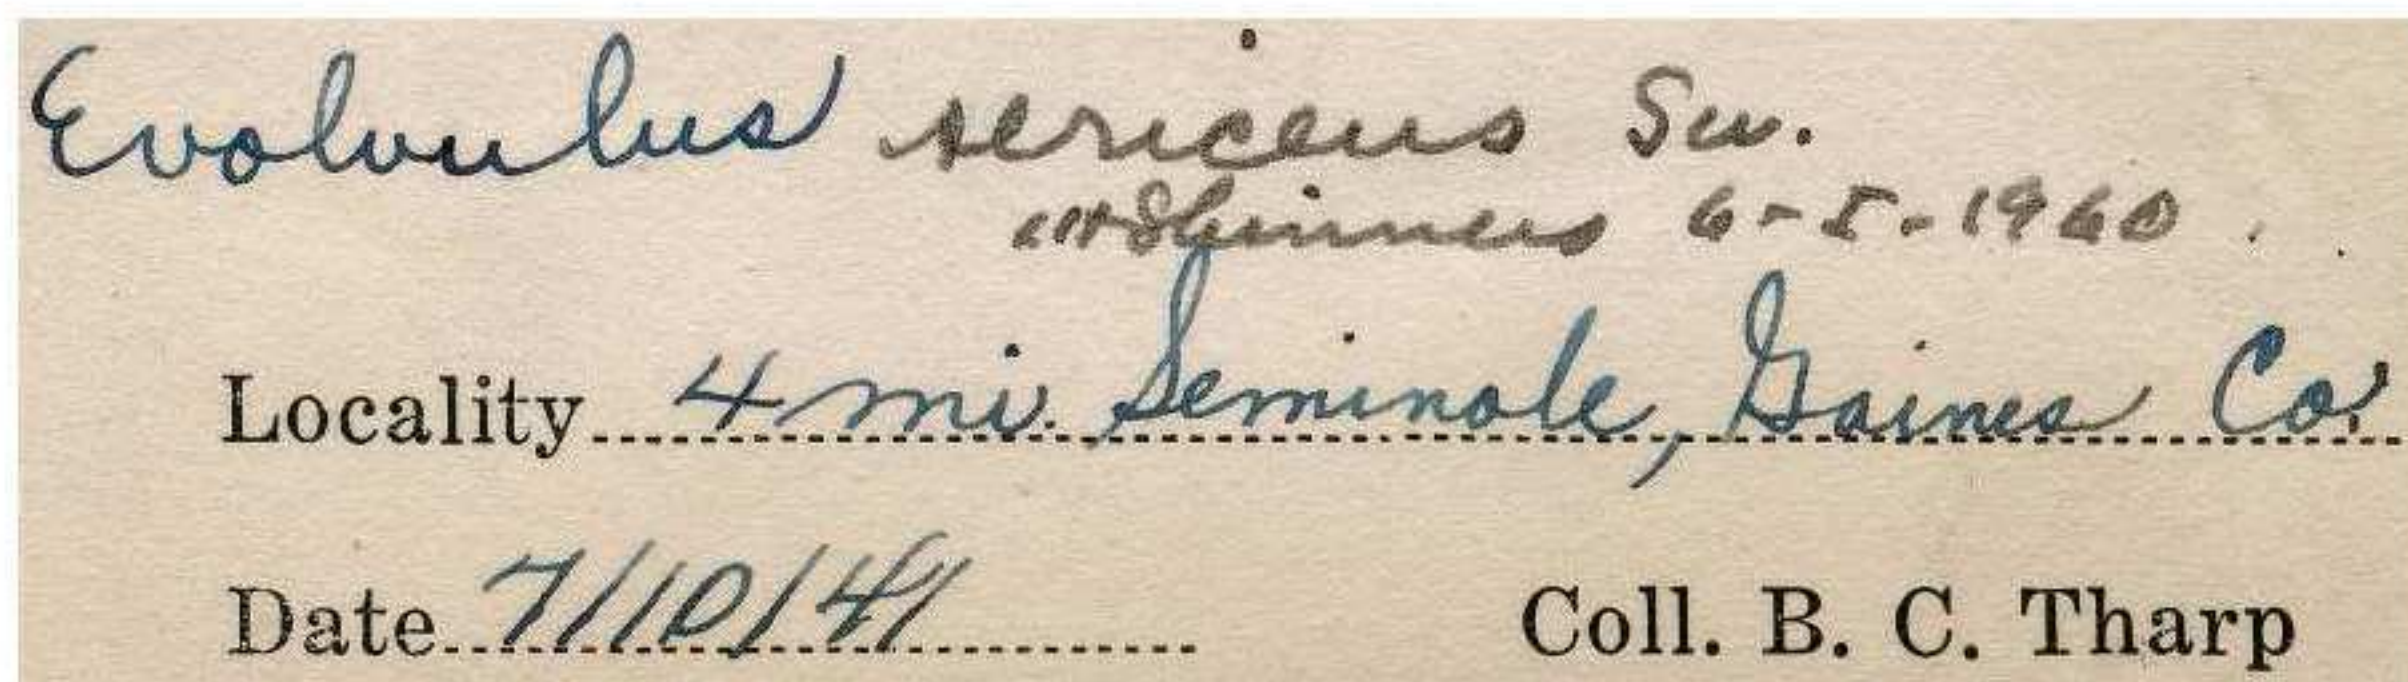 Evolvulus sericeus Sw.
Shinners 6-5-1960.
Locality 4 mi. Seminole, Gaines Co.
Date 7/10/41 Coll. B. C. Tharp